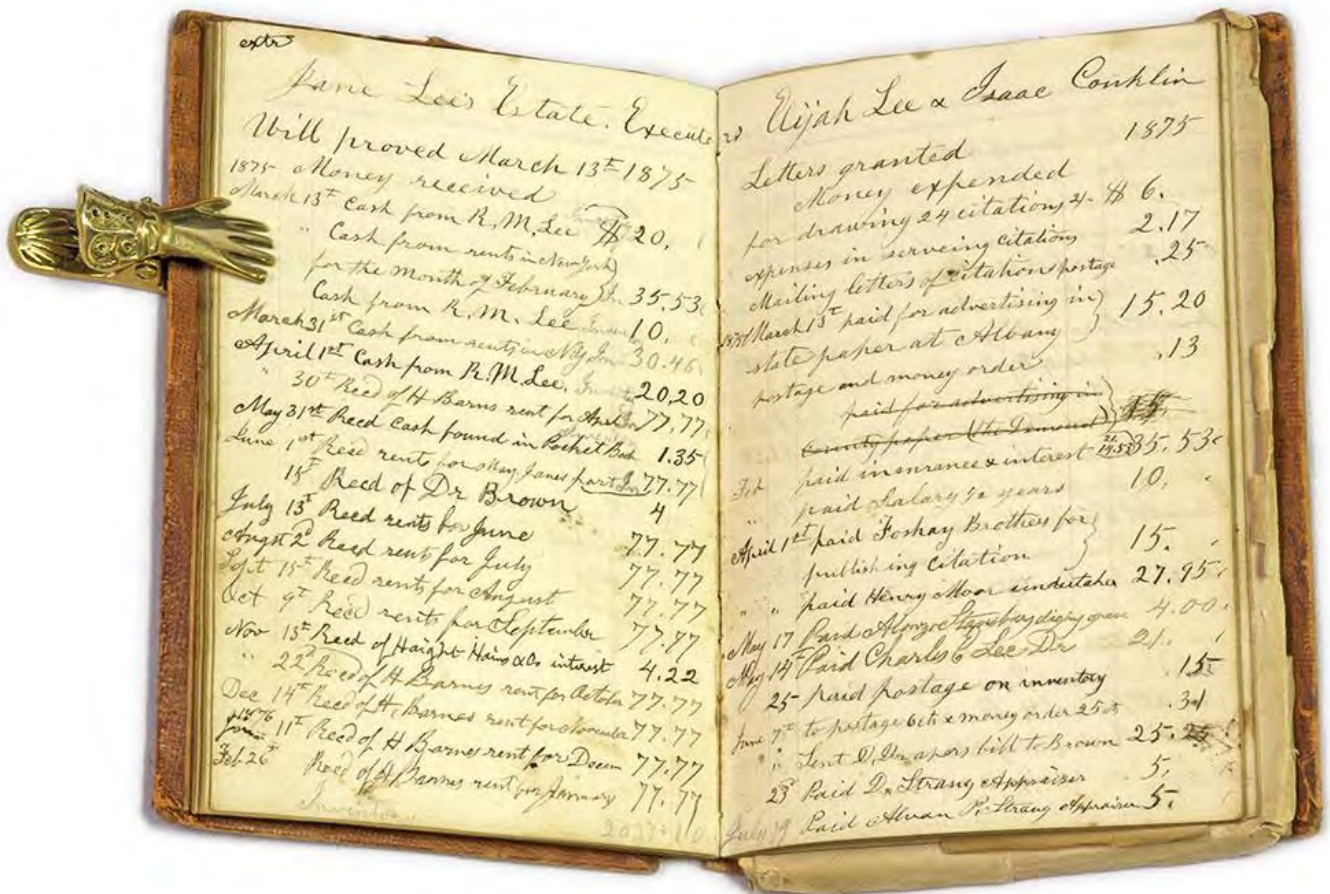 extr
Jane Lee's Estate. Execute
Will proved March 13th 1875
1875 Money received
March 13th Cash from R. M. Lee $ 20.
" Cash from rents in New York
for the month of February 35.53
Cash from R. M. Lee 10.
March 31st Cash from rents in N.Y. 30.46
April 1st Cash from R. M. Lee. 20,20
" 30th Recd of H Barns rent for April 77,77
May 31st Recd Cash found in Pocket Book 1.35
June 1st Recd rents for May Janes part 77.77
15th Recd of Dr Brown 4
July 13th Recd rents for June 77.77
Augst 2d Recd rent for July 77.77
Sept 15th Recd rents for August 77.77
Oct 9th Recd rents for September 77.77
Nov 15th Recd of Haight Hains & Co interest 4,22
" 22d Recd of H Barnes rent for October 77.77
Dec 14th Recd of H. Barnes rent for November 77.77
1876 11th Recd of H Barnes rent for Decem 77.77
Feb 26th Recd of H Barnes rent for January 77.77
Inventory
rs Elijah Lee & Isaac Conklin
Letters granted 1875
Money expended
for drawing 24 citations 2/- $ 6.
expenses in serveing citations 2.17
Mailing letters of citations postage .25
1875 March 13th paid for advertising in
state paper at Albany 15.20
postage and money order .13
paid for advertising in
County paper (the Democrat) 15.
Feb paid insurance & interest 21. 14.53 35.53
" paid Salary ½ years 10.
April 1st paid Foshay Brothers for
publishing Citation 15.
" " paid Henry Moor undertaker 27.95
May 17 Paid Alonzo Stansbury diging grave 4.00
May 14th Paid Charles C Lee Dr 21.
25 paid postage on inventory .15
June 7th to postage 6cts & money order 25cts .31
" Sent D. Drapers bill to Brown 25.
23d Paid D. Strang Appraiser 5.
July 19 Paid Alvan P. Strang Appraiser 5.